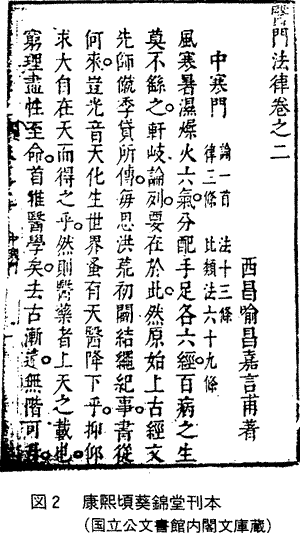 醫門法律卷之二
西昌喻昌嘉言甫著
中寒門 論一首 法十三條
律三條 比類法六十九條
風寒暑濕燥火六氣分配手足各六經百病之生
莫不繇之軒岐論列要在於此然原始上古經文
先師僦季貸所傳每思洪荒初闢結繩紀事書從
何來豈光音天化生世界蚤有天醫降下乎抑仰
求大自在天而得之乎然則醫藥者上天之載也
窮理盡性至命首推醫學矣去古漸遠無階可
図2 康熙頃葵錦堂刊本
(国立公文書館内閣文庫蔵)